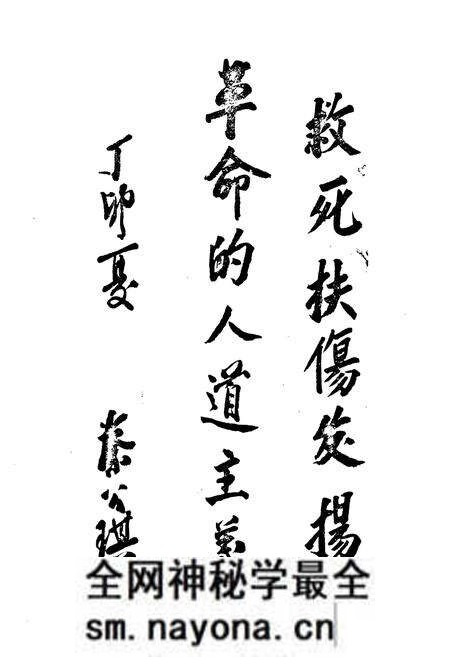 救死扶傷发揚
革命的人道主義
丁卯夏
公琪
全网神秘学最全
sm.nayona.cn